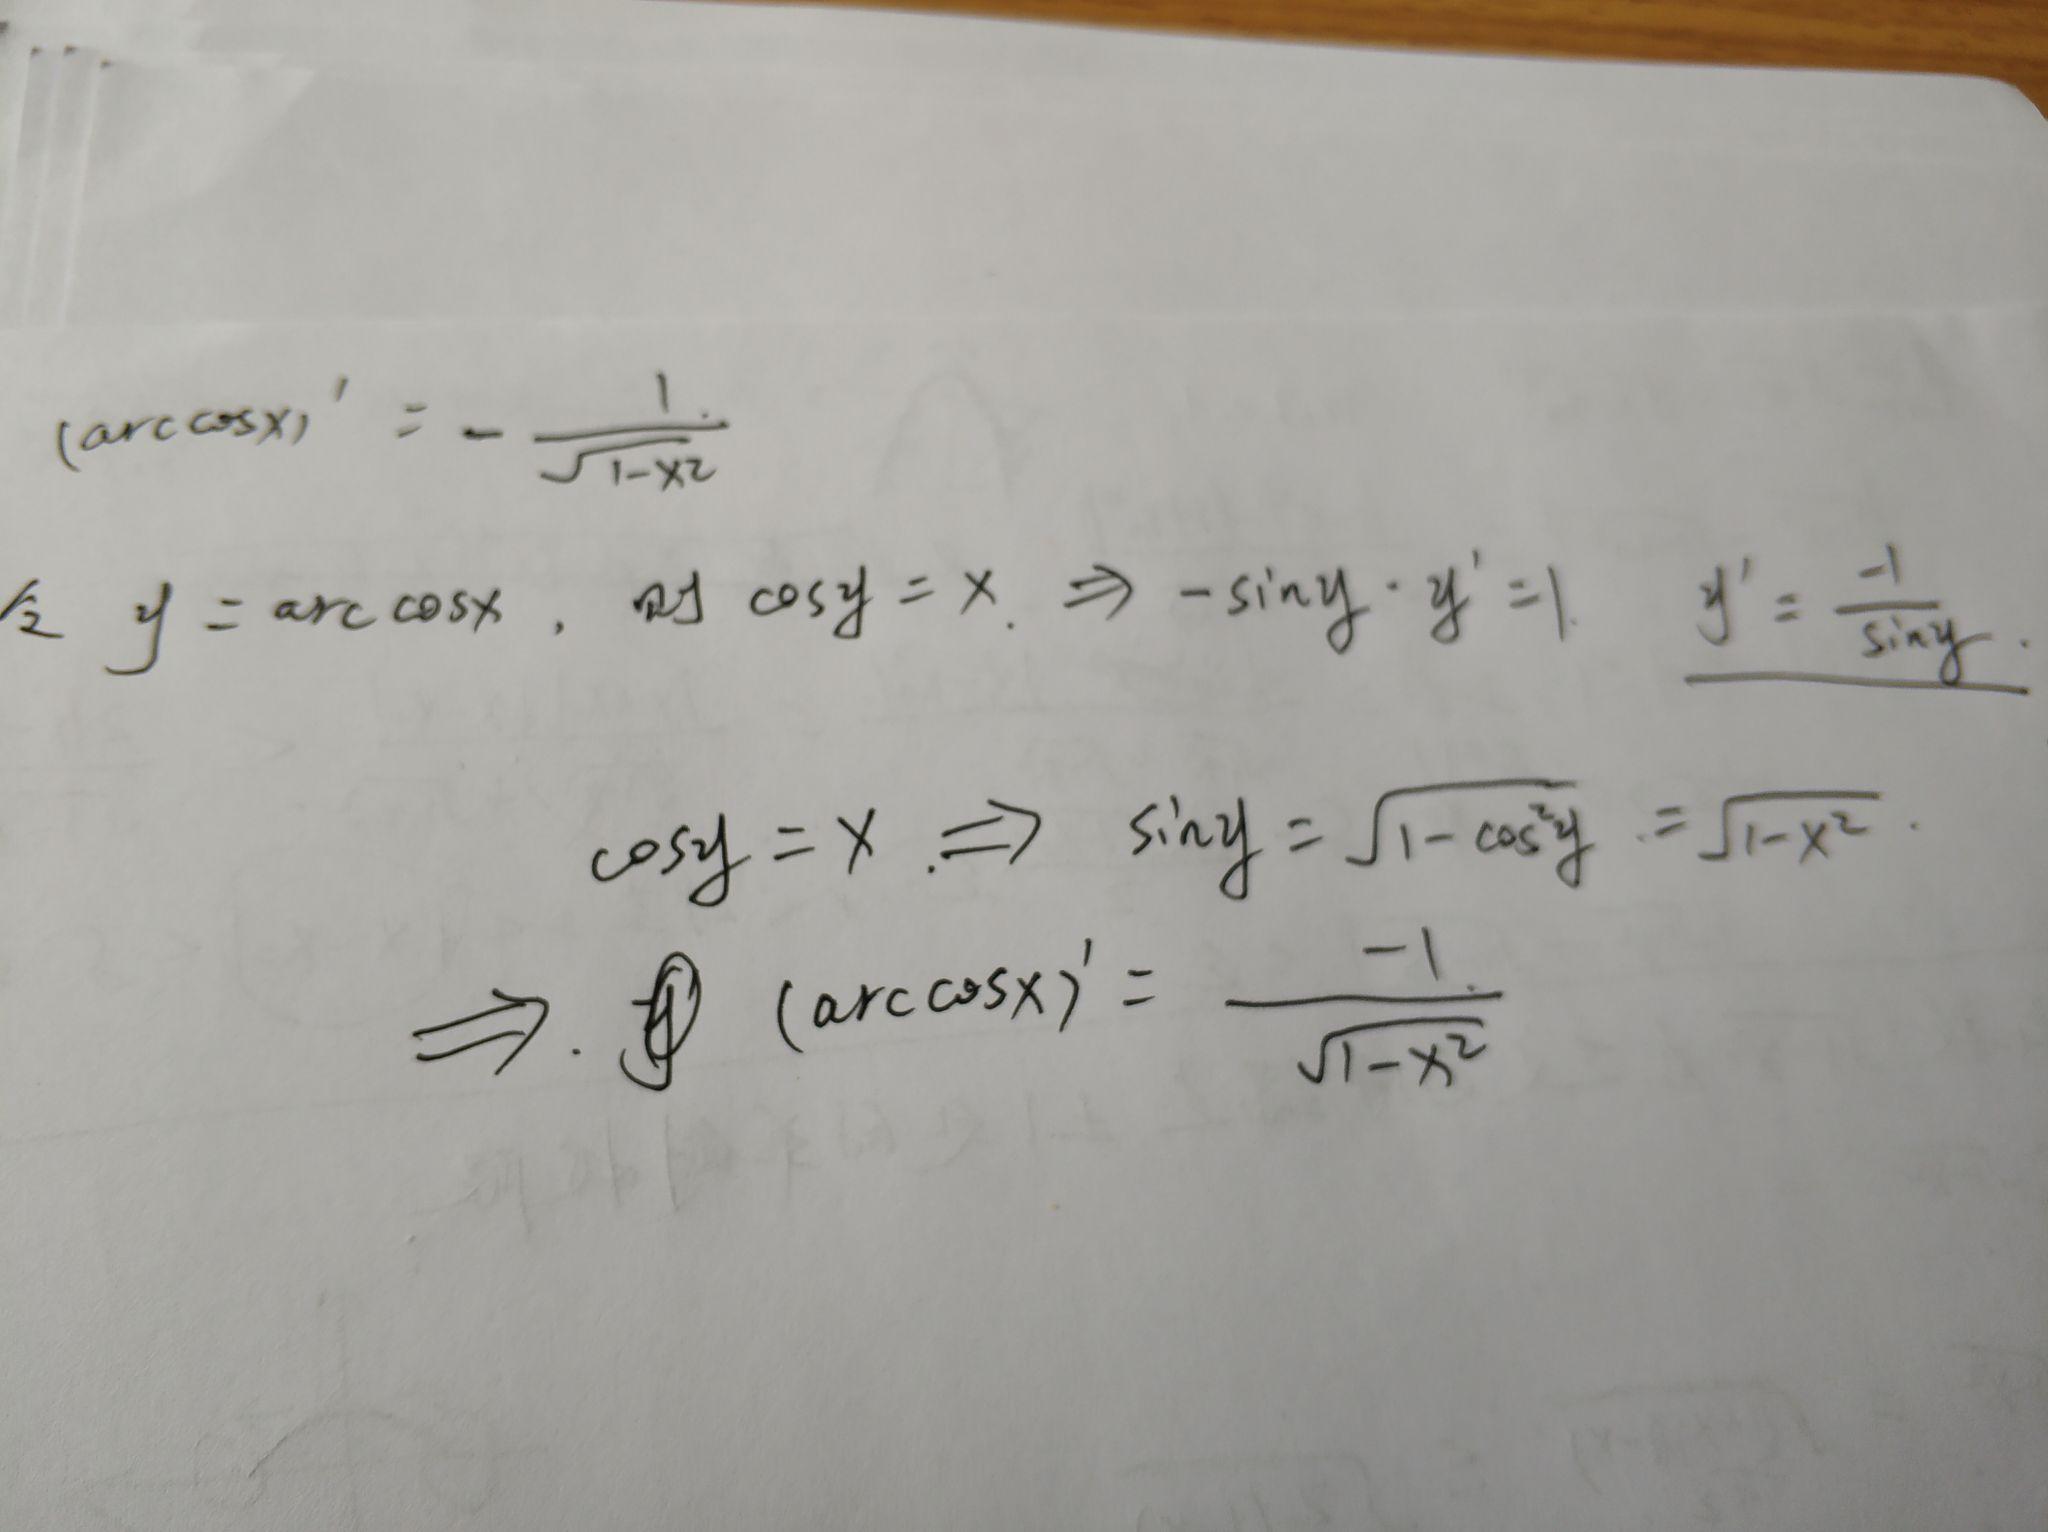 (arccosx)' = - 1/√(1-x²)
令 y = arccosx, 则 cosy = x. ⇒ -siny · y' = 1. y' = -1/siny.
cosy = x. ⇒ siny = √(1-cos²y) = √(1-x²).
⇒. (arccosx)' = -1/√(1-x²)